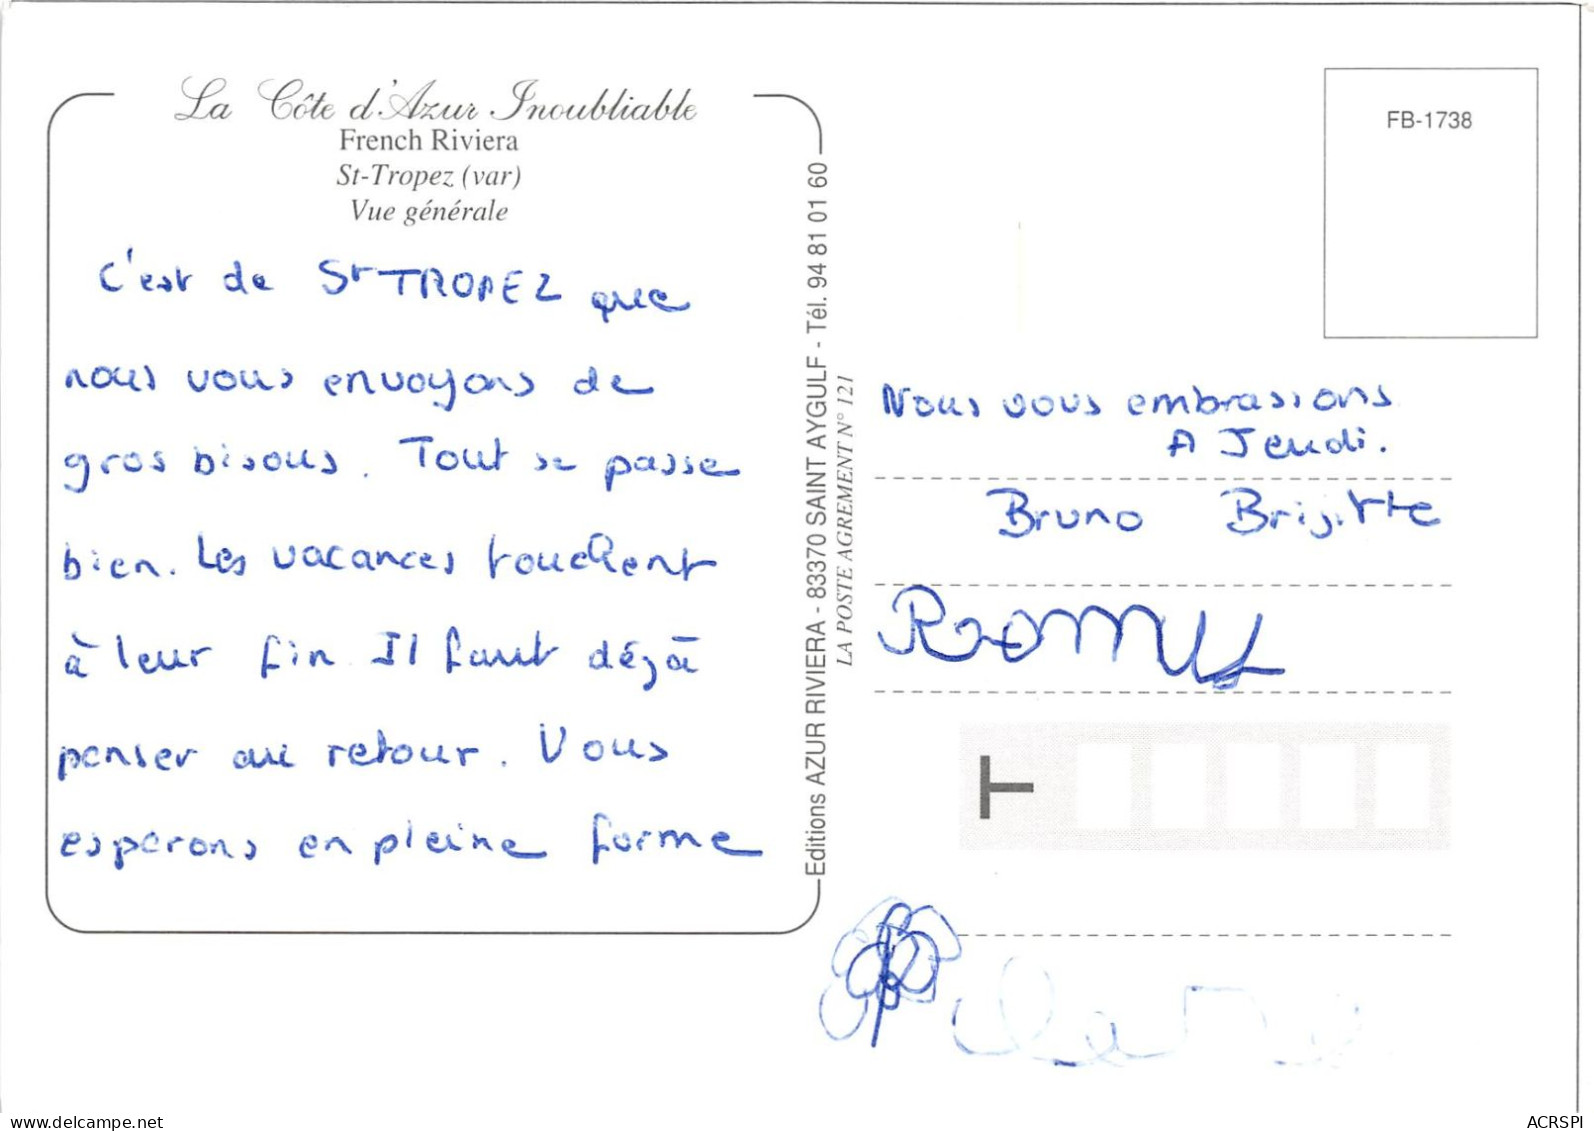 La Côte d'Azur Inoubliable
French Riviera
St-Tropez (var)
Vue générale
C'est de St TROPEZ que
nous vous envoyons de
gros bisous. Tout se passe
bien. Les vacances touchent
à leur fin Il faut déjà
penser au retour. Vous
esperons en pleine forme
Editions AZUR RIVIERA - 83370 SAINT AYGULF - Tél. 94 81 01 60
LA POSTE AGREMENT N° 121
FB-1738
Nous vous embrassons
A Jeudi.
Bruno Brigitte
T
www.delcampe.net
ACRSPI